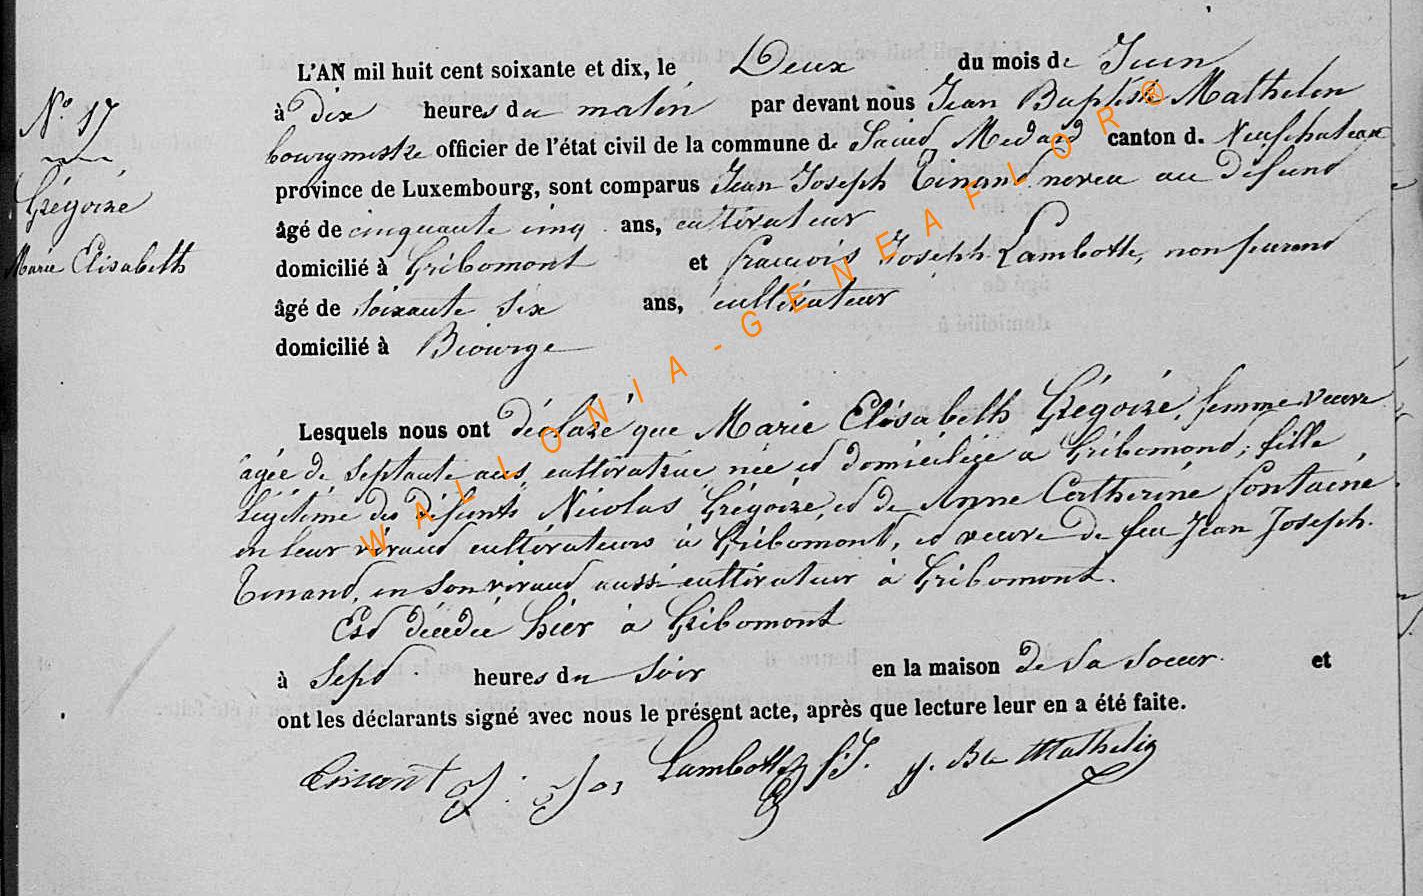 L'AN mil huit cent soixante et dix, le Deux du mois de Juin
N° 17
à Dix heures du matin par devant nous Jean Baptiste Mathelin
bourgmestre officier de l'état civil de la commune de Saint Medard canton d. Neufchateau
province de Luxembourg, sont comparus Jean Joseph Tinant neveu au défunt
Grégoire
âgé de cinquante cinq ans, cultivateur
Marie Elisabeth
domicilié à Gribomont et François Joseph Lambotte, non parent
âgé de soixante six ans, cultivateur
domicilié à Biourge
Lesquels nous ont déclaré que Marie Elisabeth Grégoire, femme veuve
agée de septante ans cultivatrice née et domiciliée à Gribomont, fille
légitime des défunts Nicolas Grégoire, et de Anne Catherine fontaine
en leur vivant cultivateurs à Gribomont, et veuve de feu Jean Joseph
Tinant, en son vivant aussi cultivateur à Gribomont.
Est décédée hier à Gribomont
à Sept heures du Soir en la maison de Sa Soeur et
ont les déclarants signé avec nous le présent acte, après que lecture leur en a été faite.
Tinant J: Jos Lambotte fJ. J. Bte Mathelin
WALLONIA-GENEAFLOR®